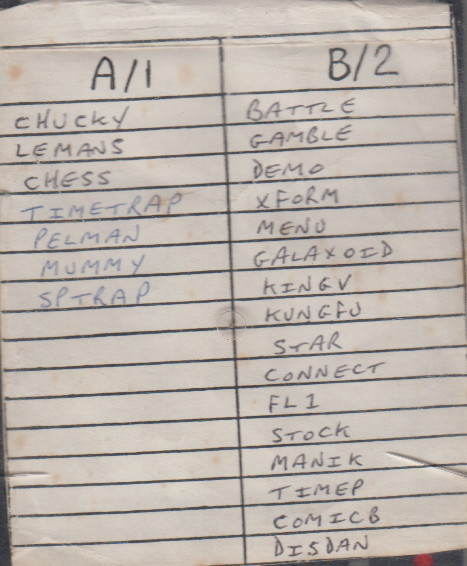 A/1
CHUCKY
LEMANS
CHESS
TIMETRAP
PELMAN
MUMMY
SPTRAP
B/2
BATTLE
GAMBLE
DEMO
XFORM
MENU
GALAXOID
KINGV
KUNGFU
STAR
CONNECT
FLI
STOCK
MANIK
TIMEP
COMICB
DISDAN